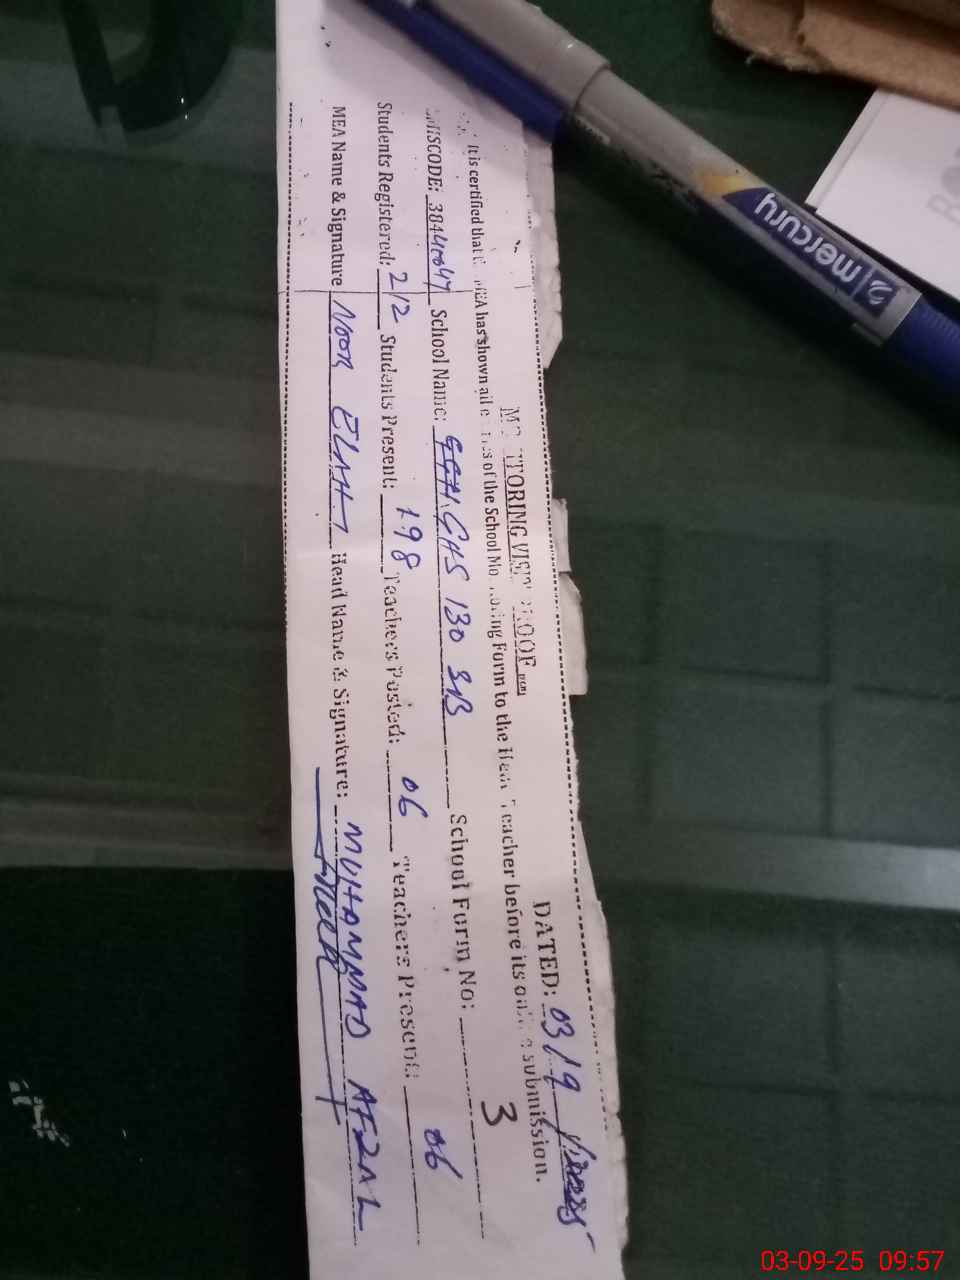 MONITORING VISIT PROOF
DATED: 03/9/
It is certified that the MEA has shown all entries of the School Monitoring Form to the Head Teacher before its online submission.
EMISCODE: 38440047 School Name: GHS 130 SB School Form No: 3
Students Registered: 212 Students Present: 198 Teachers Posted: 06 Teachers Present: 06
MEA Name & Signature NOOR ELAHI Head Name & Signature: MUHAMMAD AFZAL
mercury
03-09-25 09:57